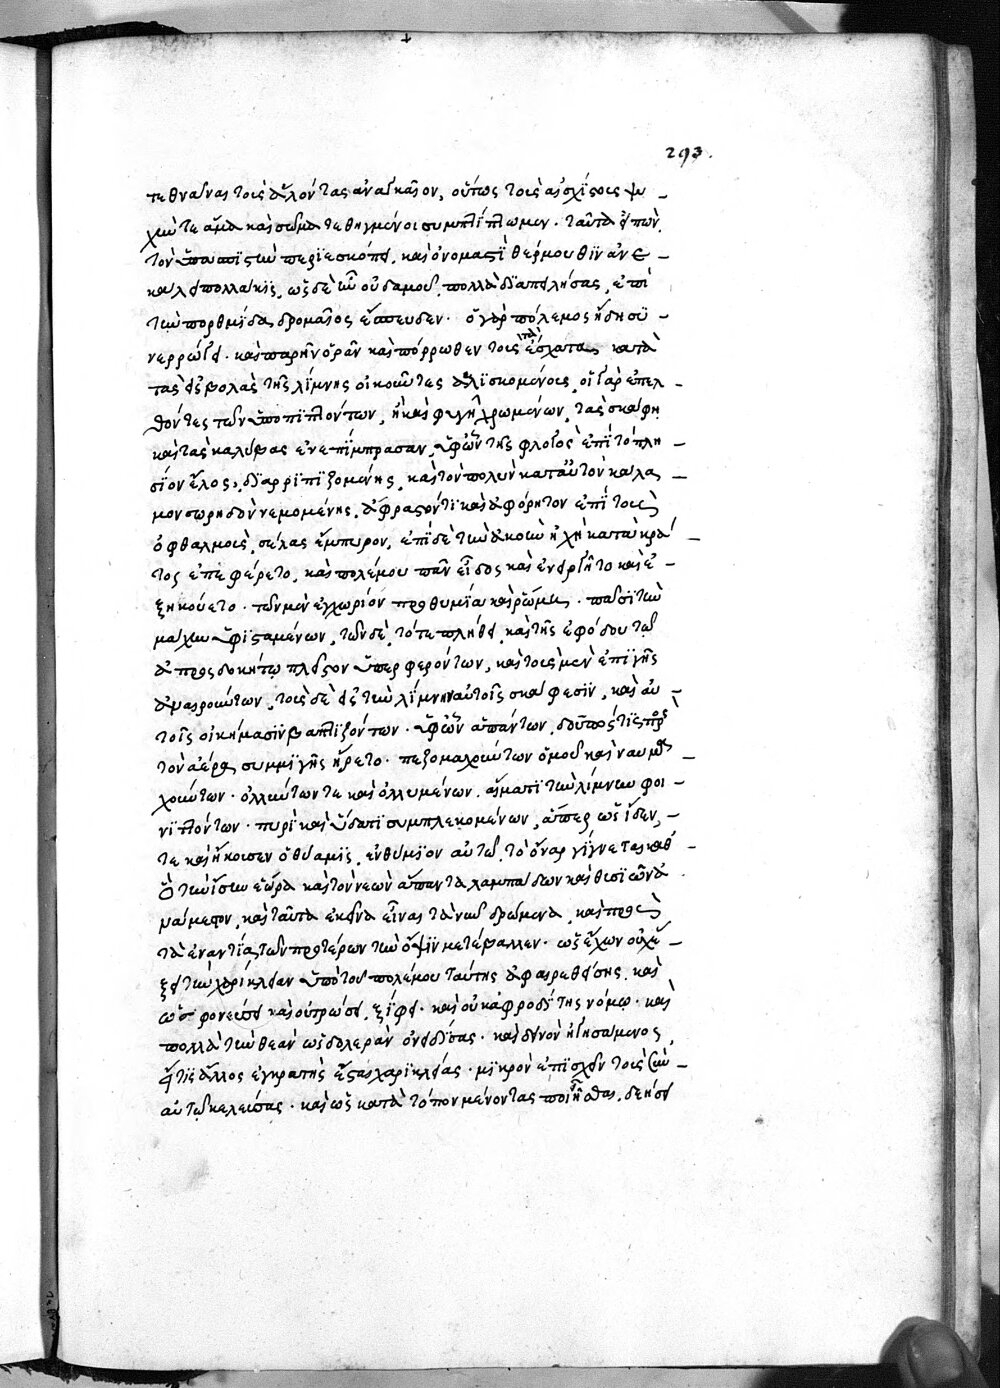 293.
τεθνάναι τοῖς ἁλόντας ἀναγκαῖον, οὕτως τοῖς αἰσχίστοις ψυ-
χήν τε ἅμα καὶ σῶμα τεθηγμένοι συμπλίπλωμεν. ταῦτα εἰπὼν,
τὸν ὑπασπιστὴν περιεσκόπει, καὶ ὀνομαστὶ θέρμουθιν ἀνε-
κάλει πολλάκις, ὡς δὲ ἦν οὐδαμοῦ, πολλὰ διαπειλήσας, ἐπὶ
τὴν πορθμίδα δρομαῖος ἔσπευδεν. ὁ γὰρ πόλεμος ἤδη συ-
νερρώγει. καὶ παρῆν ὁρᾶν καὶ πόρρωθεν τοὺς τὰ ἔσχατα κατὰ
τὰς εἰσβολὰς τῆς λίμνης οἰκοῦντας ἁλισκομένους, οἱ γὰρ ἐπελ-
θόντες τῶν ὑποπιπτόντων, ἢ καὶ φυγῇ χρωμένων, τὰ σκάφη
καὶ τὰς καλύβας ἐνεπίμπρασαν, ὑφ' ὧν τῆς φλογὸς ἐπὶ τὸ πλη-
σίον ἕλος, διαρριπιζομένης, καὶ τὸν πολὺν κατ' αὐτὸν κάλα-
μον σωρηδὸν νεμομένης, ἄφραστόν τι καὶ ἀφόρητον ἐπὶ τοὺς
ὀφθαλμοὺς, σέλας ἔμπυρον, ἐπὶ δὲ τὴν ἀκοὴν ἠχὴ κατὰ κρά-
τος ἐπεφέρετο, καὶ πολέμου πᾶν εἶδος καὶ ἐνηργεῖτο καὶ ἐ-
ξηκούετο. τῶν μὲν ἐγχωρίων προθυμίᾳ καὶ ῥώμῃ πάσῃ τὴν
μάχην ὑφισταμένων, τῶν δὲ, τότε πλήθει, καὶ τῆς ἐφόδου τῷ
ἀπροσδοκήτῳ πλεῖστον ὑπερφερόντων, καὶ τοὺς μὲν ἐπὶ γῆς
ἀναιρούντων, τοὺς δὲ εἰς τὴν λίμνην αὐτοῖς σκάφεσιν, καὶ αὐ-
τοῖς οἰκήμασιν βαπτιζόντων. ὑφ' ὧν ἁπάντων, δοῦπός τις πρὸς
τὸν ἀέρα συμμιγὴς ἤρετο. πεζομαχούντων ὁμοῦ καὶ ναυμα-
χούντων. ὀλλύντων τε καὶ ὀλλυμένων. αἵματι τὴν λίμνην φοι-
νιττόντων. πυρὶ καὶ ὕδατι συμπλεκομένων, ἅπερ ὡς εἶδέν
τε καὶ ἤκουσεν ὁ θύαμις, ἐνθύμιον αὐτῷ, τὸ ὄναρ γίγνεται καθ'
ὃ τὴν ἶσιν ἑώρα καὶ τὸν νεὼν ἅπαντα λαμπάδων καὶ θυσιῶν ἀ-
νάμεστον, καὶ ταῦτα ἐκεῖνα εἶναι τὰ νῦν δρώμενα, καὶ πρὸς
τὰ ἐναντία τῶν προτέρων τὴν ὄψιν μετέβαλλεν. ὡς ἔχων οὐχ ἕ-
ξει τὴν χαρίκλειαν ὑπὸ τοῦ πολέμου ταύτης ἀφαιρεθείσης, καὶ
ὡς φονεύσει καὶ οὐ τρώσει, ξίφει. καὶ οὐκ ἀφροδίτης νόμῳ. καὶ
πολλὰ τὴν θεὰν ὡς δολερὰν ὀνειδίσας. καὶ δεινὸν ἡγησάμενος,
εἴ τις ἄλλος ἐγκρατὴς ἔσται χαρικλείας. μικρὸν ἐπισχεῖν τοὺς σὺν
αὐτῷ κελεύσας. καὶ ὡς κατὰ τόπον μένοντας ποιεῖσθαι, δεήσει